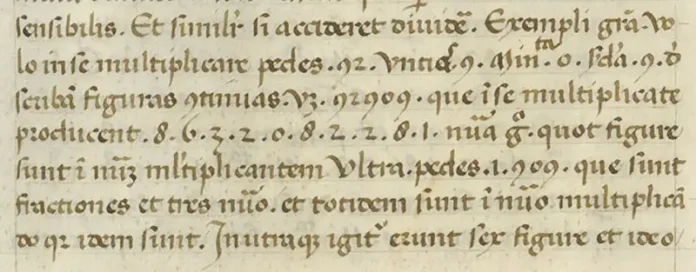 sensibilis. Et similiꝛ si accideret dividē. Exempli grā. Vo
lo in se multiplicare pedes .92. Untias .9. Min.ᵗᵃ .0. scdā .9. đ
scribā figuras ꝯtinuas. Vꝫ. 92909. que īse multiplicate
producent .8.6.3.2.0.8.2.2.8.1. nūa gº. quot figure
sunt ī nūꝫ ml̄tiplicantem Ultra. pedes .1. 909. que sunt
fractiones et tres nūo. et totidem sunt ī nūo multiplicā
do qr idem sunt. In utraqꝫ igit᷑ erunt sex figure et ideo